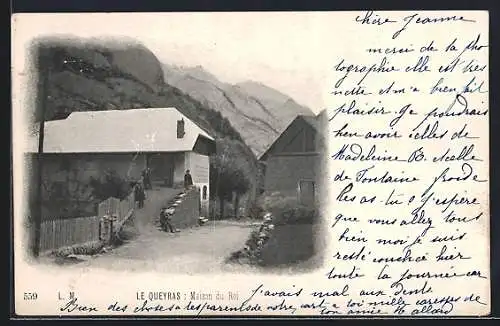 Chère Jeanne
merci de la pho
tographie elle est très
nette et m'a bien fait
plaisir. Je pourrais
bien avoir celles de
Madeleine B. et celle
de Fontaine
Pas as-tu? J'espère
que vous allez tous
bien moi je suis
restée couchée hier
toute la journée car
j'avais mal aux dents
559 L. M. LE QUEYRAS : Maison du Roi
Bien des choses à tes parents de notre part à toi mille caresses de
ton amie M allard